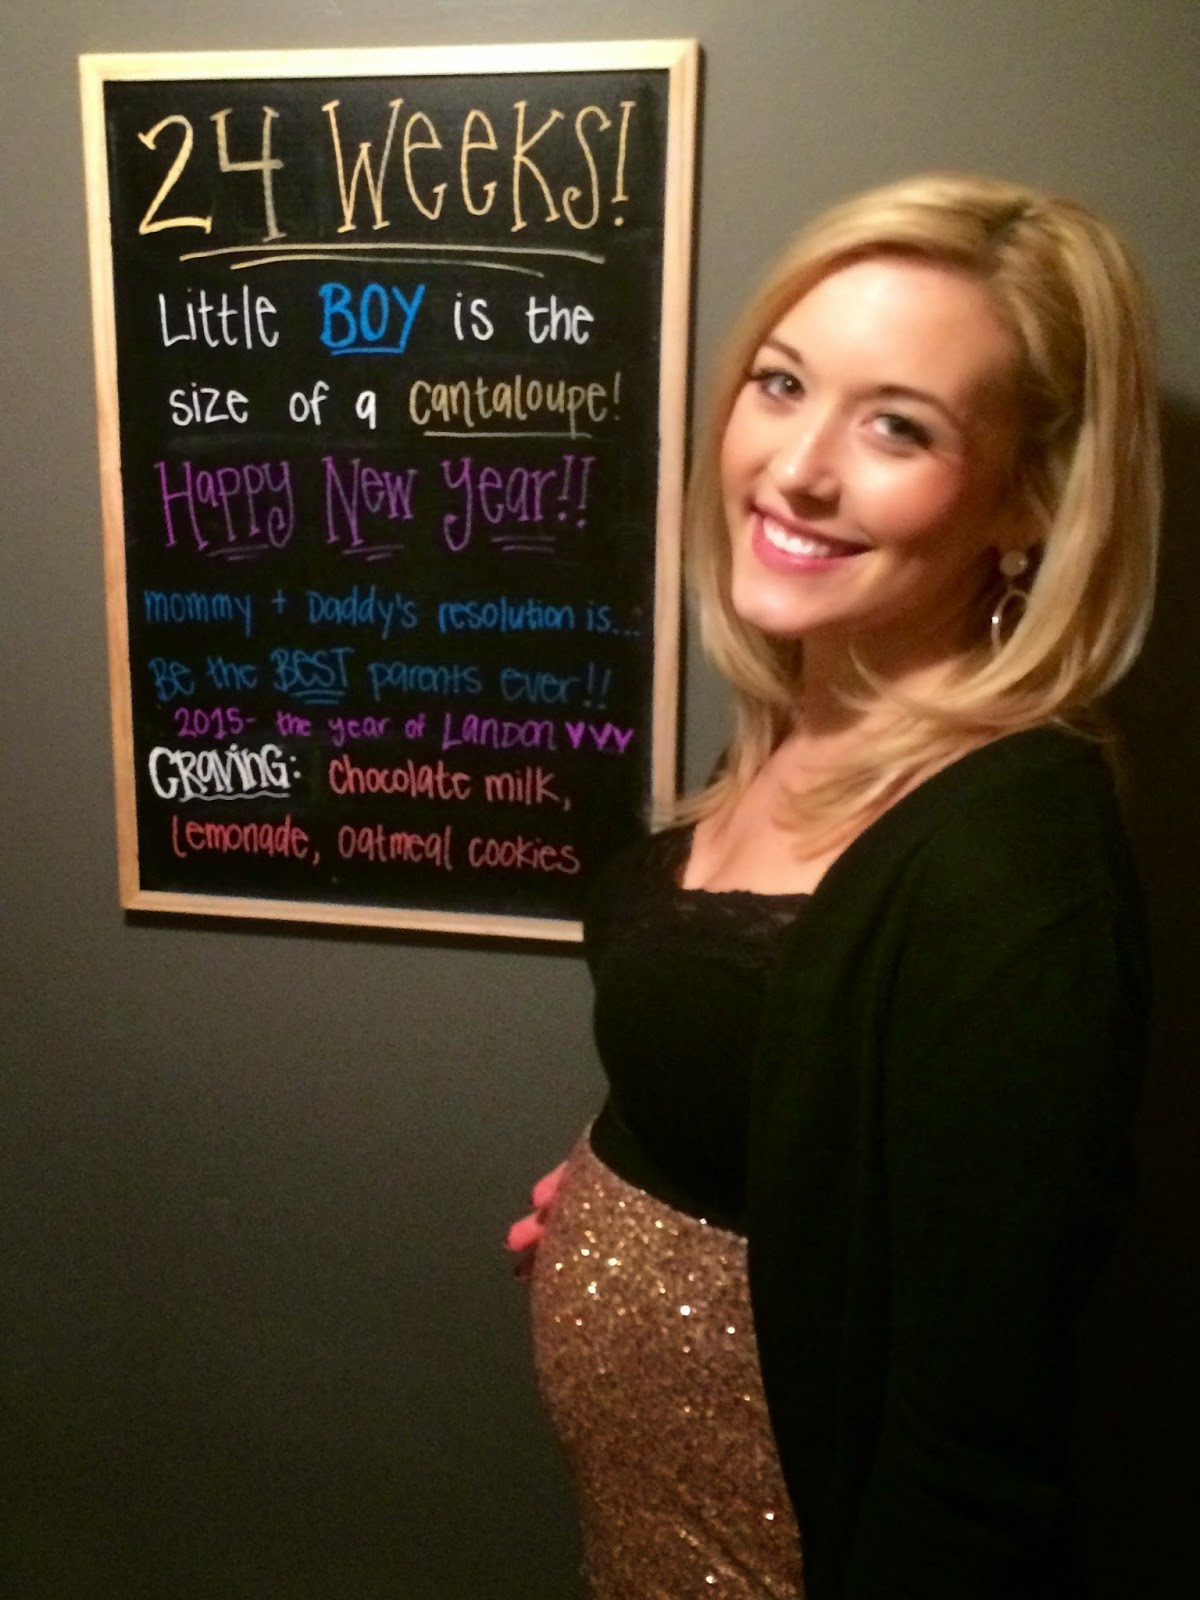 24 Weeks!
Little BOY is the
size of a cantaloupe!
Happy New Year!!
mommy + Daddy's resolution is...
Be the BEST parents ever!!
2015- the year of LANDON ♥♥♥
CRAVING: chocolate milk,
lemonade, oatmeal cookies